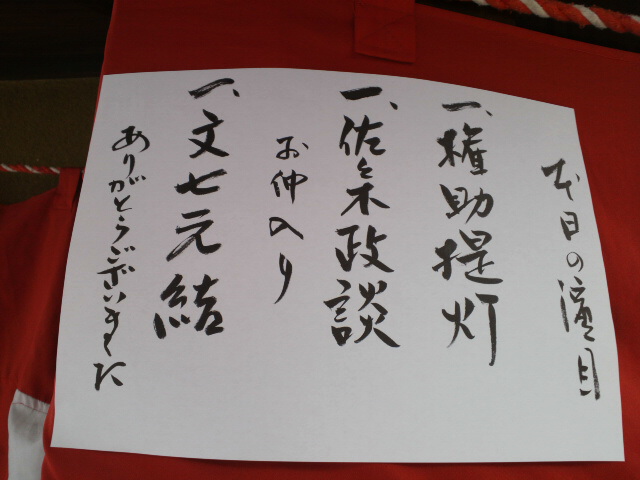 本日の演目
一、権助提灯
一、佐々木政談
お仲入り
一、文七元結
ありがとうございました